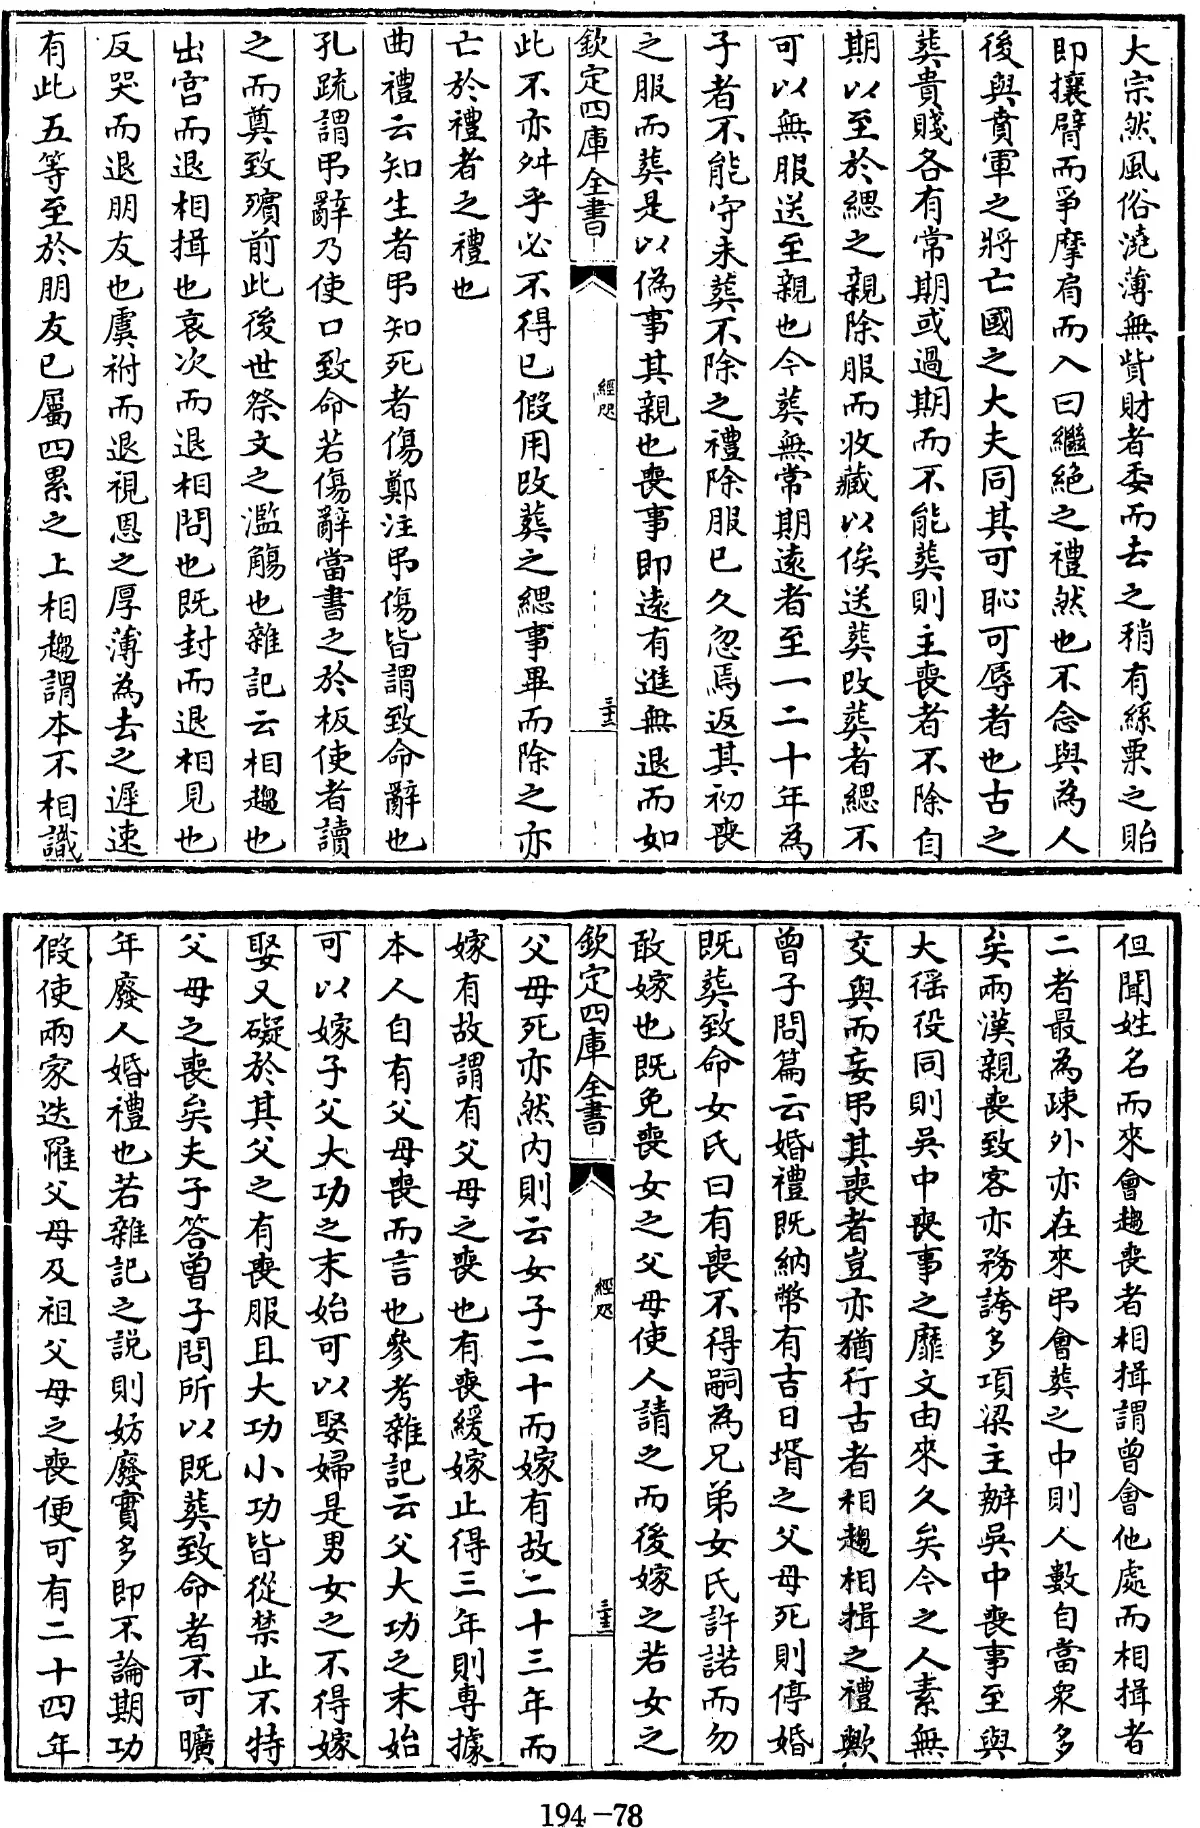 大宗然風俗澆薄無貲財者委而去之稍有絲粟之貽
即攘臂而爭摩肩而入曰繼絶之禮然也不念與為人
後與賁軍之將亡國之大夫同其可恥可辱者也古之
葬貴賤各有常期或過期而不能葬則主喪者不除自
期以至於緦之親除服而收藏以俟送葬改葬者緦不
可以無服送至親也今葬無常期遠者至一二十年為
子者不能守未葬不除之禮除服已久忽焉返其初喪
之服而葬是以偽事其親也喪事即遠有進無退而如
欽定四庫全書
經咫
三十三
此不亦舛乎必不得已假用改葬之緦事畢而除之亦
亡於禮者之禮也
曲禮云知生者弔知死者傷鄭注弔傷皆謂致命辭也
孔疏謂弔辭乃使口致命若傷辭當書之於板使者讀
之而奠致殯前此後世祭文之濫觴也雜記云相趨也
出宫而退相揖也哀次而退相問也既封而退相見也
反哭而退朋友也虞祔而退視恩之厚薄為去之遲速
有此五等至於朋友已屬四累之上相趨謂本不相識
但聞姓名而來會趨喪者相揖謂曾會他處而相揖者
二者最為疎外亦在來弔會葬之中則人數自當衆多
矣兩漢親喪致客亦務誇多項梁主辦吳中喪事至與
大徭役同則吳中喪事之靡文由來久矣今之人素無
交與而妄弔其喪者豈亦猶行古者相趨相揖之禮歟
曾子問篇云婚禮既納幣有吉日壻之父母死則停婚
既葬致命女氏曰有喪不得嗣為兄弟女氏許諾而勿
敢嫁也既免喪女之父母使人請之而後嫁之若女之
欽定四庫全書
經咫
三十三
父母死亦然内則云女子二十而嫁有故二十三年而
嫁有故謂有父母之喪也有喪緩嫁止得三年則專據
本人自有父母喪而言也參考雜記云父大功之末始
可以嫁子父大功之末始可以娶婦是男女之不得嫁
娶又礙於其父之有喪服且大功小功皆從禁止不特
父母之喪矣夫子答曾子問所以既葬致命者不可曠
年廢人婚禮也若雜記之說則妨廢實多即不論期功
假使兩家迭罹父母及祖父母之喪便可有二十四年
194-78